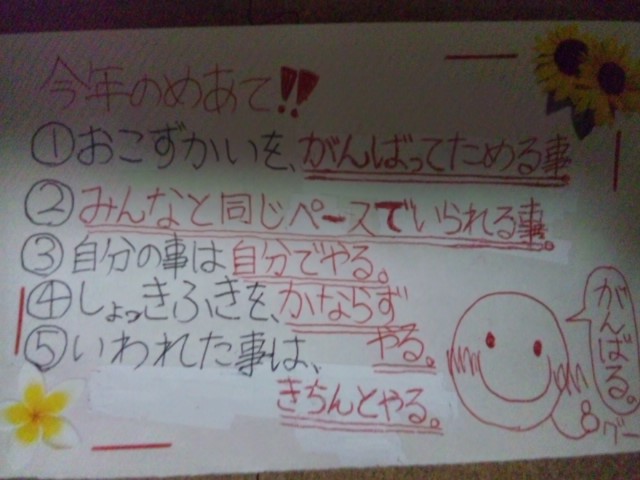 今年のめあて!!
①おこずかいを、がんばってためる事
②みんなと同じペースでいられる事。
③自分の事は自分でやる。
④しょっきふきを、かならず
やる。
⑤いわれた事は、
きちんとやる。
がんばる。
グー